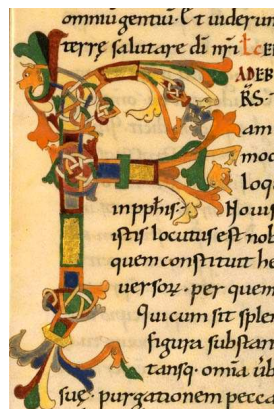 omniū gentiū· Et uiderun
terrę salutare dī nr̄i
ADEB
R̄S·
am
mod
loq
in pph̄is· Nouis
istis locutus est nob
quem constituit he
uersorꝝ· per quem
Qui cum sit splen
figura substan
tansq· om̄ia
suę· purgationem pecca